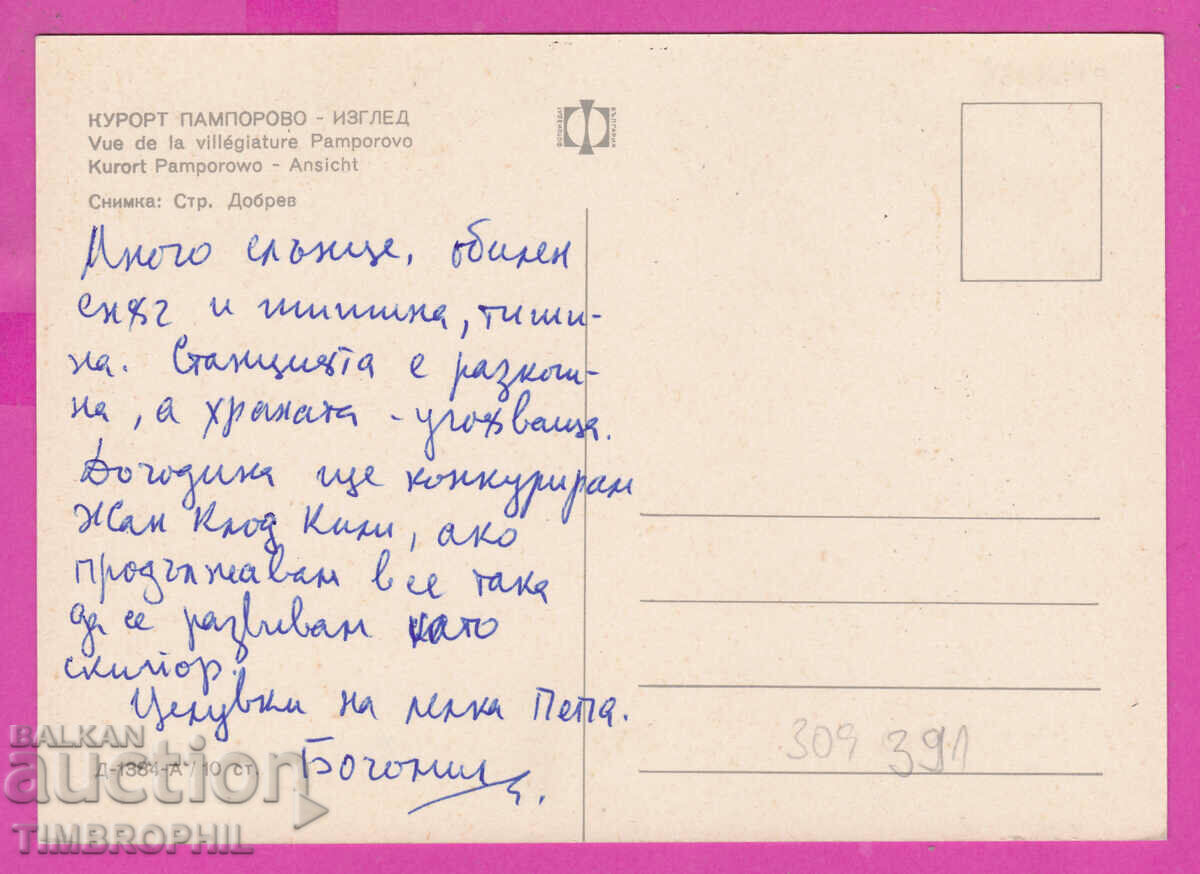 КУРОРТ ПАМПОРОВО - ИЗГЛЕД
Vue de la villégiature Pamporovo
Kurort Pamporowo - Ansicht
Снимка: Стр. Добрев
Много слънце, обилен
сняг и тишина, тиши-
на. Станцията е разкош-
на, а храната - угояваща.
Догодина ще конкурирам
Жан Клод Кили, ако
продължавам все така
да се развивам като
скиьор.
Целувки на лелка Пепа.
Богомил
Д-1384-А / 10 ст.
309 391
BALKAN
auction
TIMBROPHIL